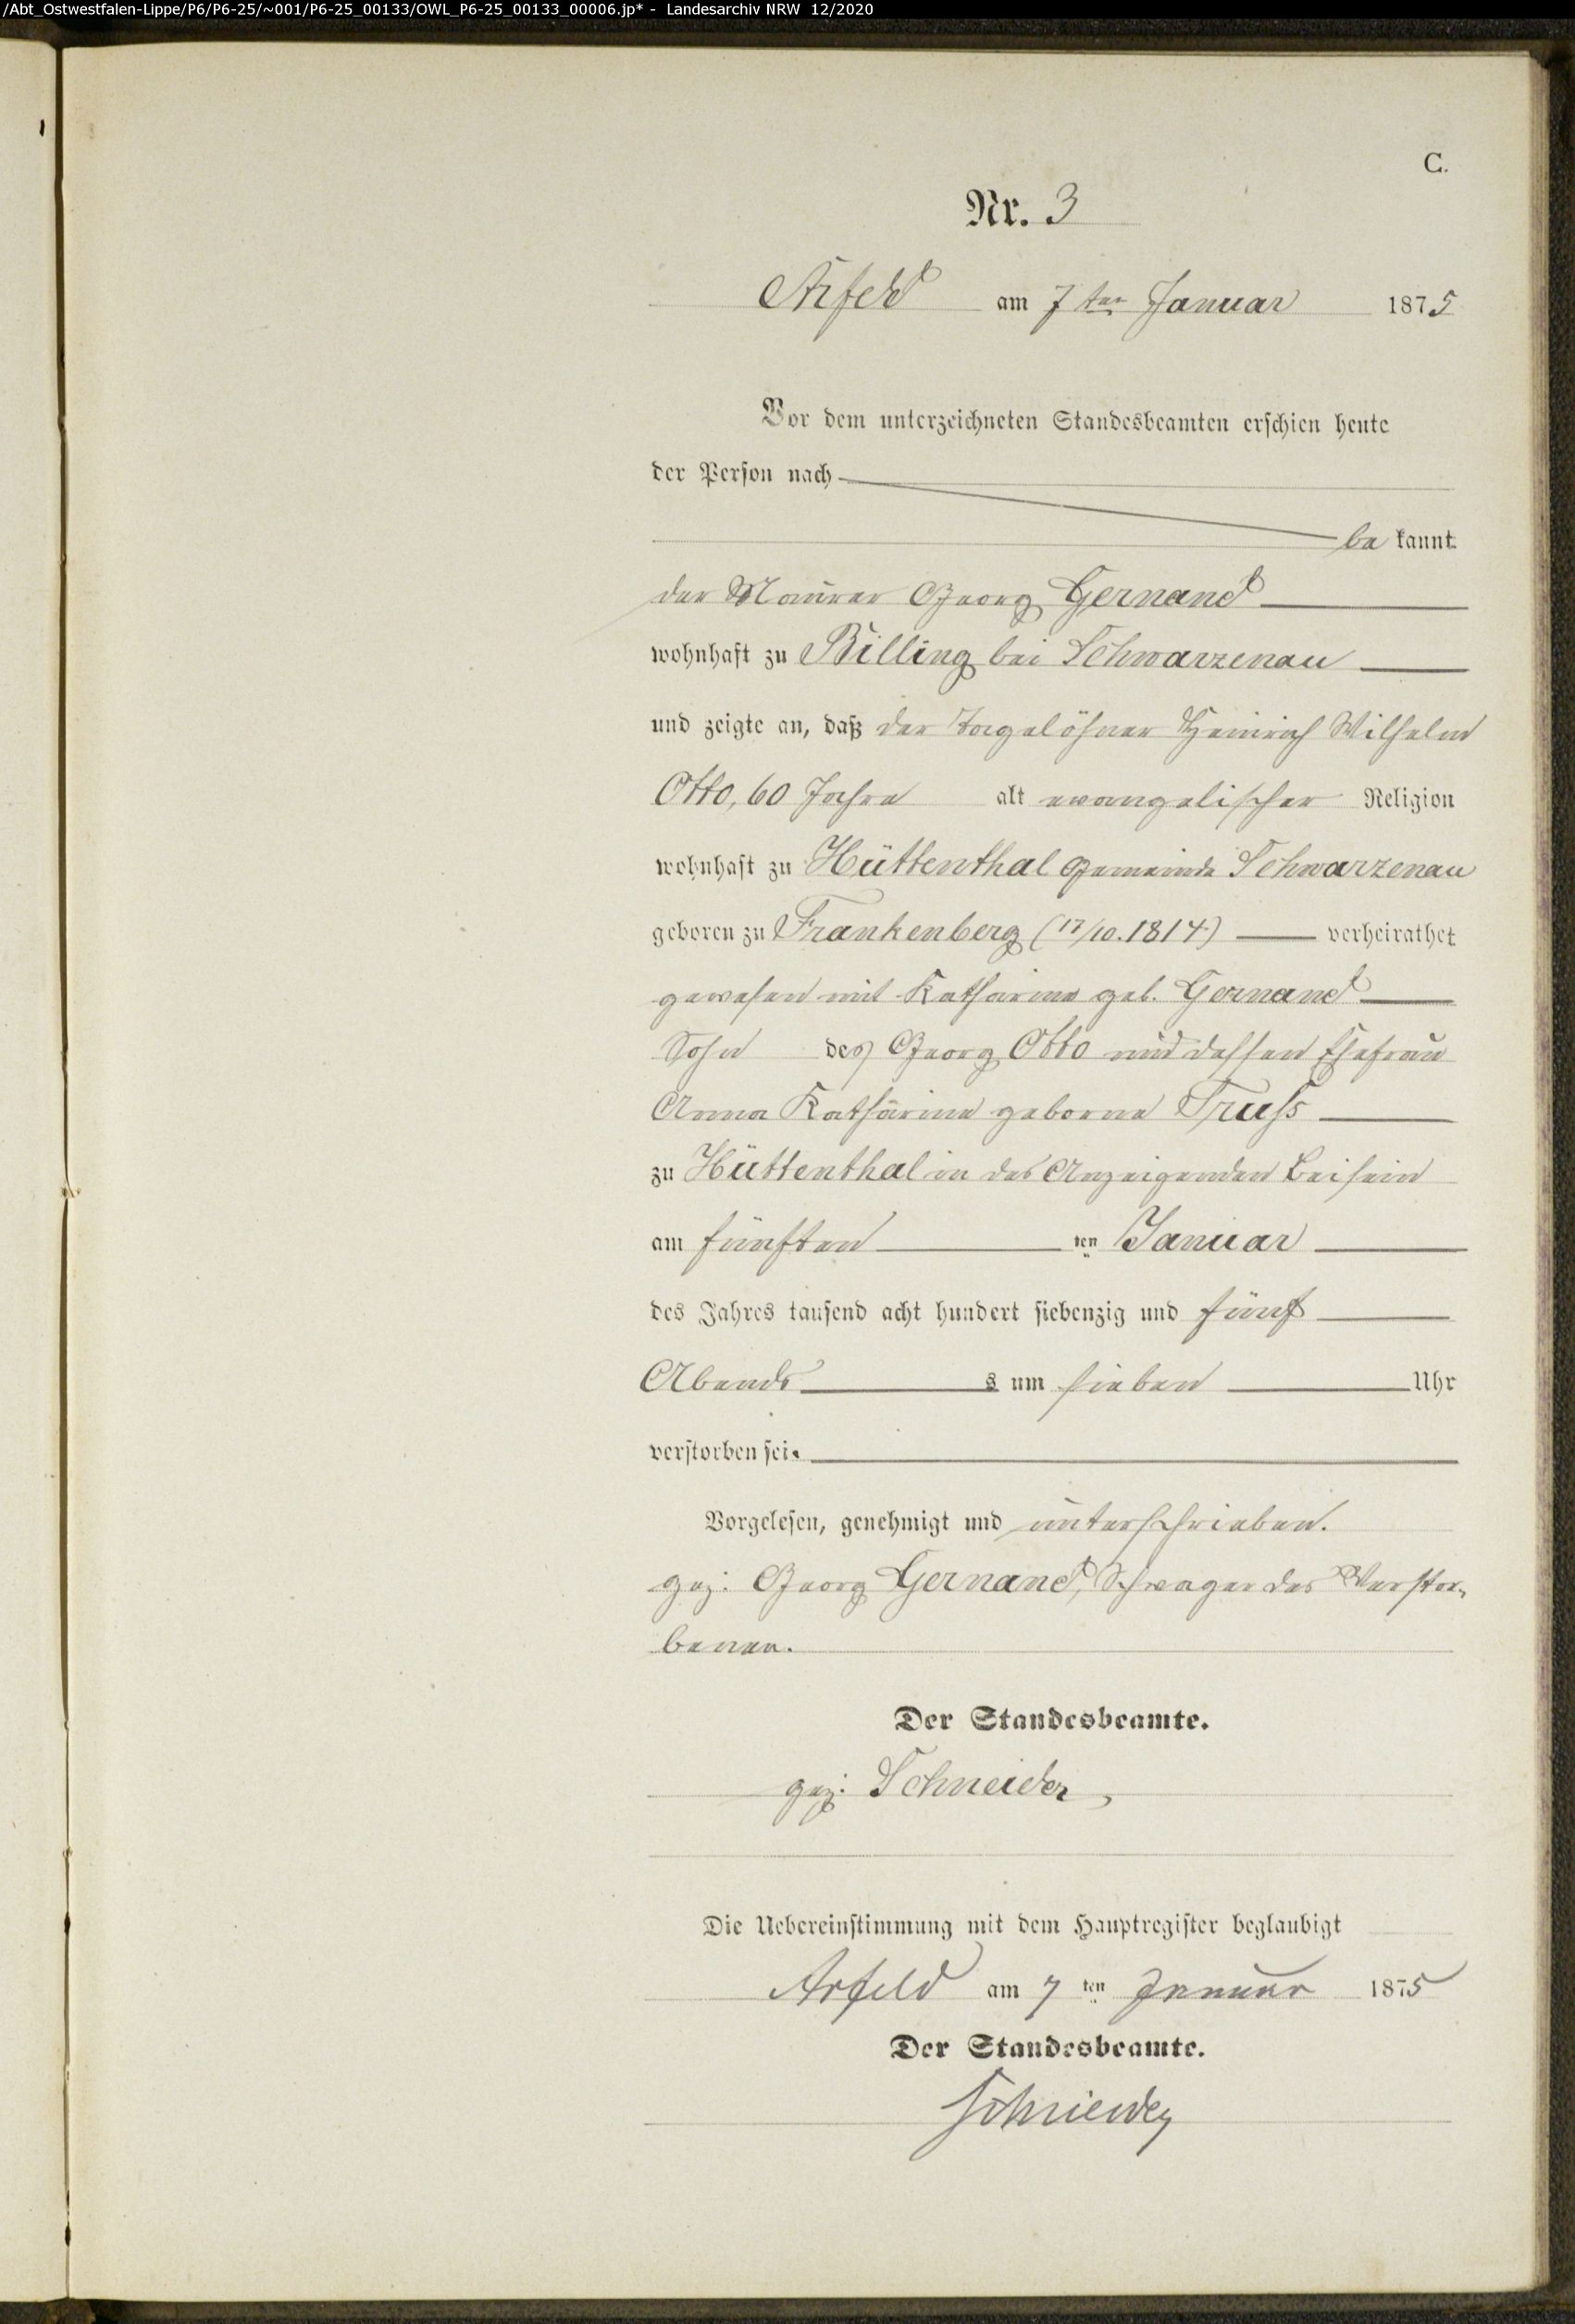 /Abt_Ostwestfalen-Lippe/P6/P6-25/~001/P6-25_00133/OWL_P6-25_00133_00006.jp* - Landesarchiv NRW 12/2020
C.
Nr. 3
Arfeld am 7ten Januar 1875
Vor dem unterzeichneten Standesbeamten erschien heute
der Person nach
bekannt
der Maurer Georg Gernand
wohnhaft zu Billing bei Schwarzenau
und zeigte an, daß der Tagelöhner Heinrich Wilhelm
Otto, 60 Jahre alt evangelischer Religion
wohnhaft zu Hüttenthal Gemeinde Schwarzenau
geboren zu Frankenberg (17/10.1814) verheirathet
gewesen mit Katharine geb. Gernand
Sohn des Georg Otto und dessen Ehefrau
Anna Katharine geborne Truſs
zu Hüttenthal in des Anzeigenden Beisein
am fünften ten Januar
des Jahres tausend acht hundert siebenzig und fünf
Abends s um sieben Uhr
verstorben sei.
Vorgelesen, genehmigt und unterschrieben.
gez: Georg Gernand, Schwager des Verstor-
benen.
Der Standesbeamte.
gez: Schneider
Die Uebereinstimmung mit dem Hauptregister beglaubigt
Arfeld am 7ten Januar 1875
Der Standesbeamte.
Schneider